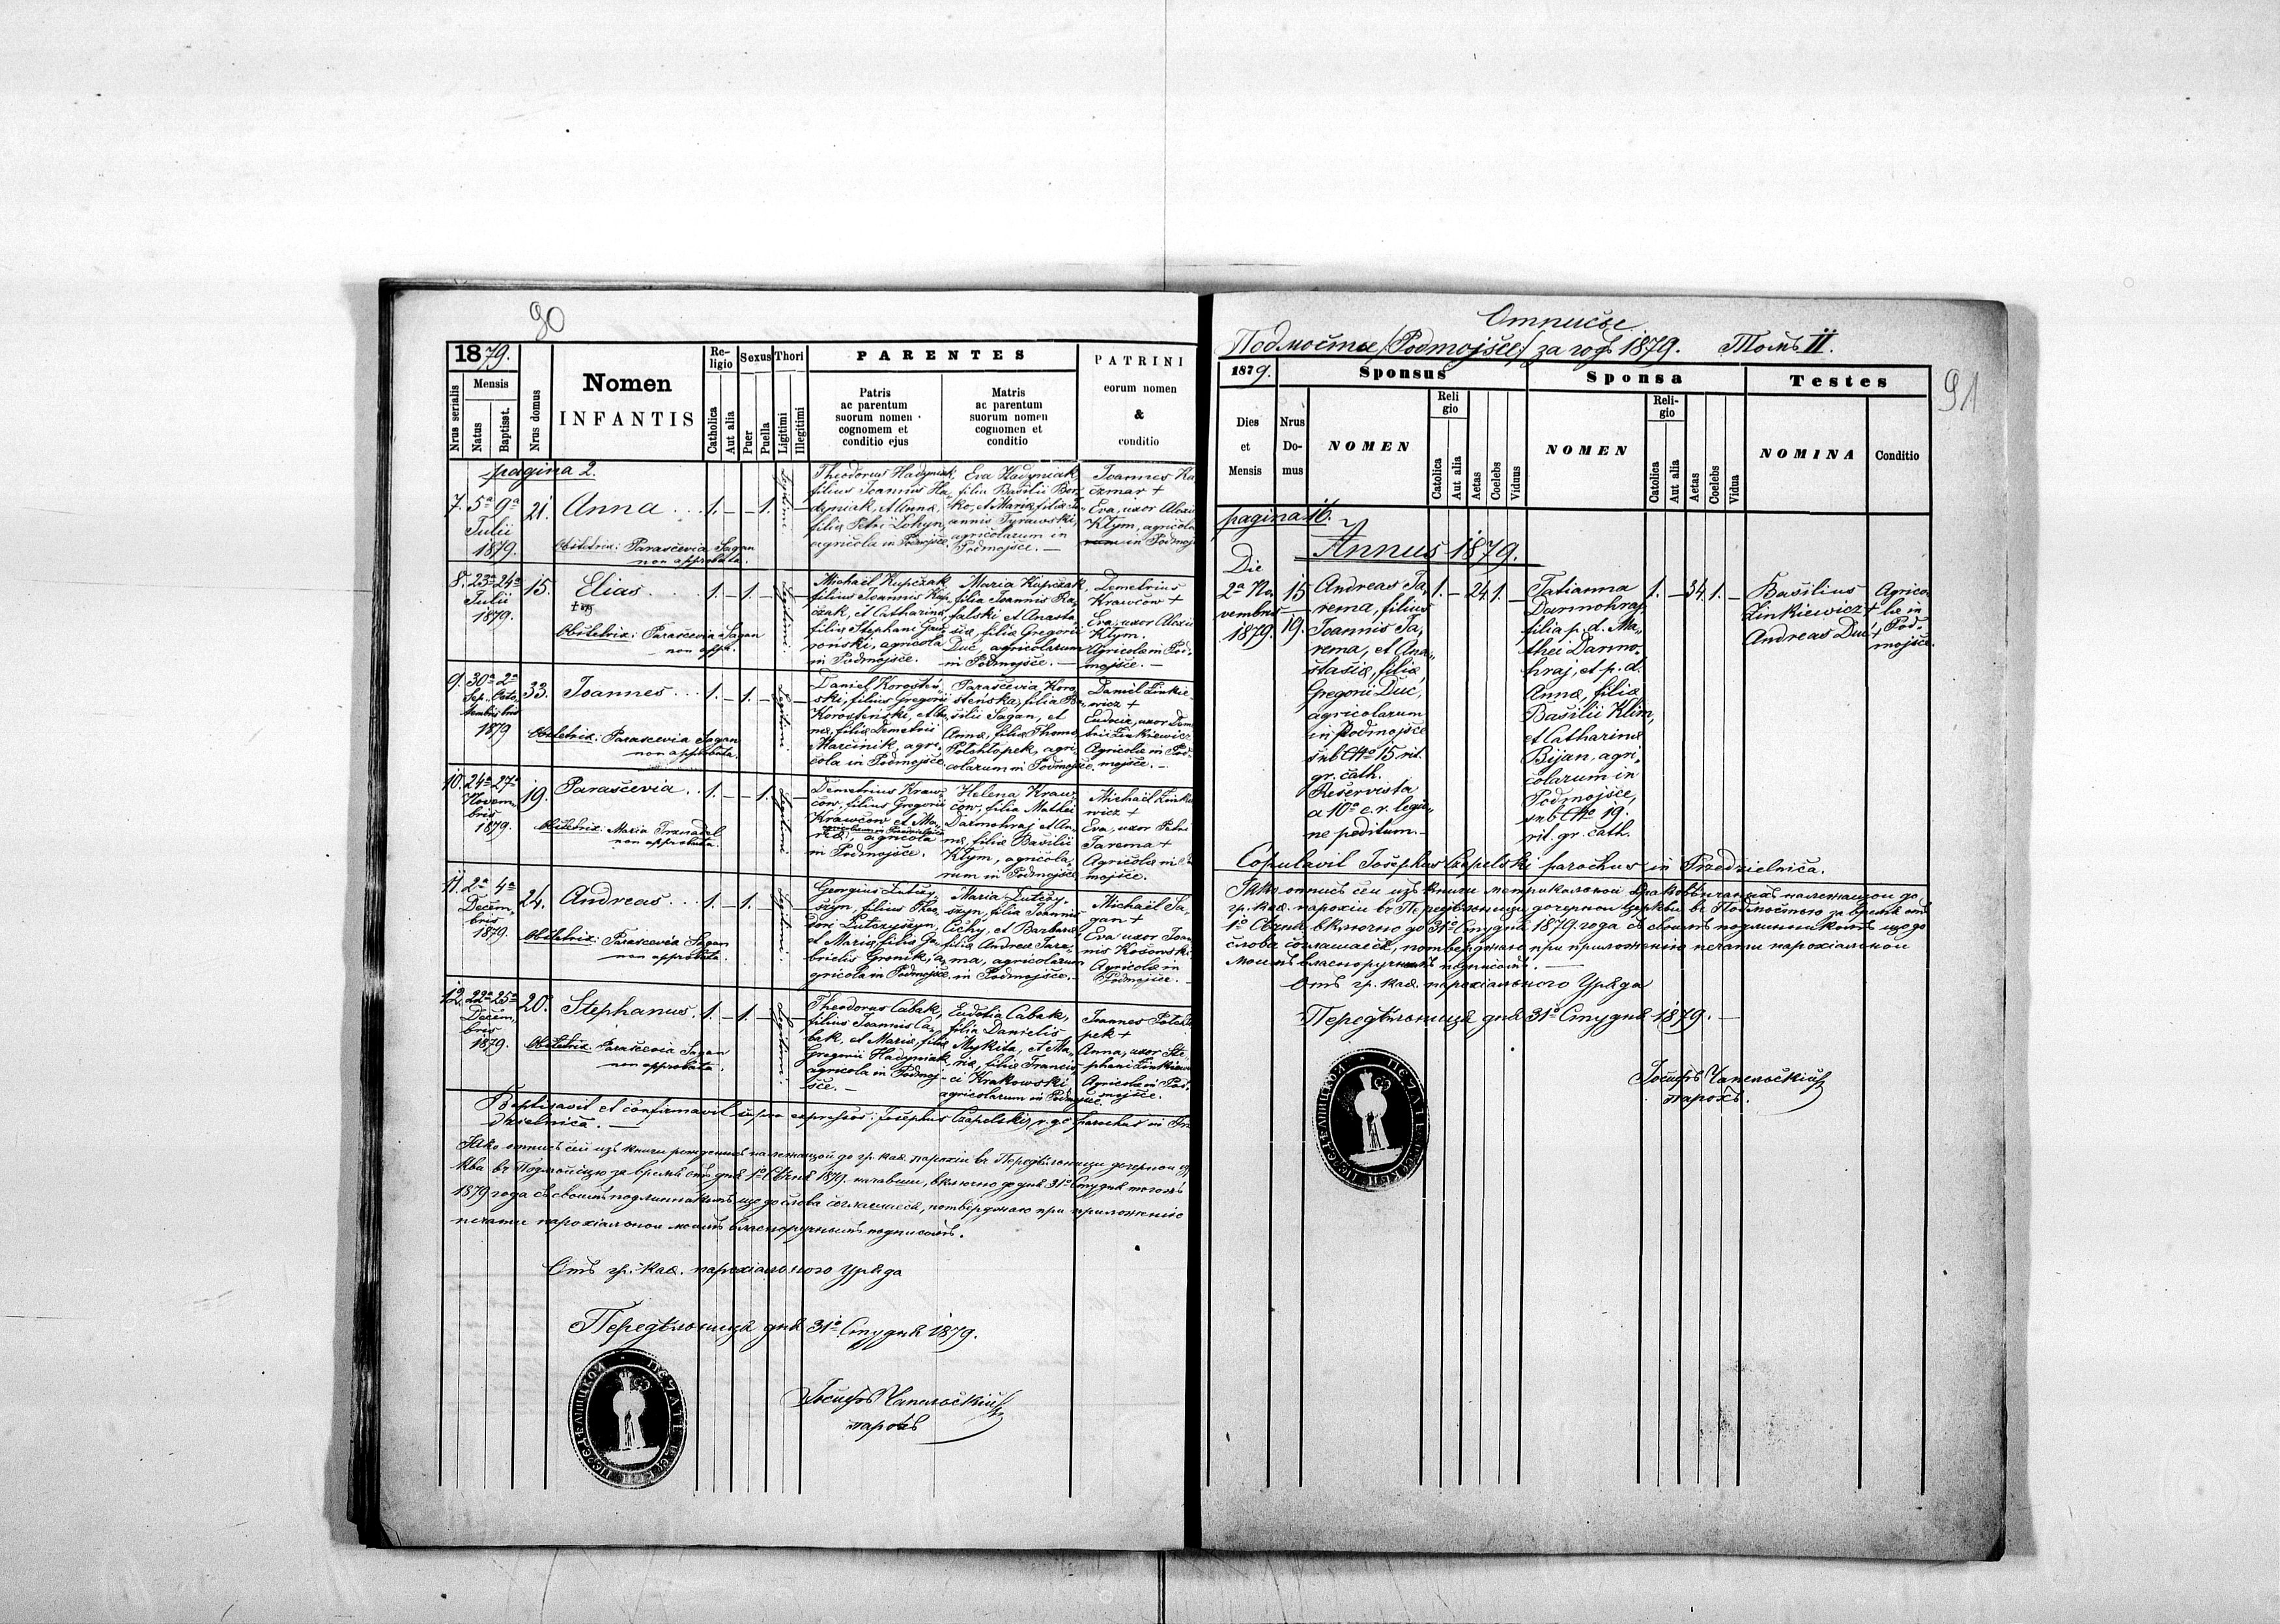 90
1879.
Nrus serialis
Mensis
Natus
Baptisat.
Nrus domus
Nomen
INFANTIS
Re-
ligio
Catholica
Aut alia
Sexus
Puer
Puella
Thori
Ligitimi
Illegitimi
PARENTES
Patris
ac parentum
suorum nomen
cognomem et
conditio ejus
Matris
ac parentum
suorum nomen
cognomen et
conditio
PATRINI
eorum nomen
&
conditio
pagina 2.
7. 5ª 9ª
Julii
1879.
21.
Anna . . .
1. — — 1. —
Obstetrix: Parasčevia Sagan
non approbata.
Theodorus Hadyniak,
filius Joannis Ha-
dyniak, et Anna,
filia Petri Lohyn,
agricola in Podmojsce.
Eva Hadyniak,
filia Basilii Bor-
ko, et Maria, filia Jo-
annis Tyrawski,
agricolarum in
Podmojsce. —
Joannes Ka
czmar +
Eva, uxor Alexii
Kłym, agricola
rum in Podmoj
8. 23ª 24ª
Julii
1879.
15.
Elias. . . .
1. — 1. — —
Obstetrix: Parasčevia Sagan
non app.
Michaël Kupczak
filius Joannis Kup-
czak, et Catharina,
filia Stephani Gaw-
roński, agricola
in Podmojsce.
Maria Kupczak,
filia Joannis Ra-
falski et Anasta-
sia, filia Gregorii
Duć, agricolarum
in Podmojsce. —
Demetrius
Krawców +
Eva, uxor Alexii
Kłym.
Agricolæ in Pod-
mojsce. —
9. 30ª 2ª
Sep- Octo-
tembris bris
1879
33.
Joannes . . .
1. — 1. —
Obstetrix: Parascevia Sagan
non approbata.
Daniel Korosteń-
ski, filius Gregorii
Korosteński, et An-
na, filia Demetrii
Marcinik, agri-
cola in Podmojsce,
Parasčevia Koro-
steńska, filia Ba-
silii Sagan, et
Anna, filia Thomæ
Potchłopek, agri-
colarum in Podmojsce.
Daniel Linkie-
wicz +
Eudocia, uxor Dem-
trii Linkiewicz
Agricolæ in Pod-
mojsce. —
10. 24ª 27ª
Novem-
bris
1879.
19.
Parasčevia . .
1. — — 1.
Obstetrix: Maria Trznadel
non approbata.
Demetrius Kraw-
ców, filius Gregorii
Krawców et Ma-
ria, agricola
in Podmojsce.
Helena Kraw-
ców, filia Mathei
Darmohraj et An-
na, filia Basilii
Kłym, agricola-
rum in Podmojsce
Michaël Linkie
wicz +
Eva, uxor Petri
Jarema +
Agricolæ in
mojsce.
11. 2ª 4ª
Decem-
bris
1879.
24.
Andreas . . .
1. — 1. — —
Obstetrix: Parascevia Sagan
non approbata.
Georgius Lutczy-
szyn, filius Theo-
dori Lutczyszyn,
et Maria, filia Ga-
brielis Gronik, a-
gricola in Podmojsce,
Maria Lutczy-
szyn, filia Joannis
Cichy, et Barbara
filia Andreæ Jare-
ma, agricolarum
in Podmojsce. —
Michaël Sa-
gan +
Eva uxor Joan-
nis Kosowski
Agricolæ in
Podmojsce. —
12. 22ª 25ª
Decem-
bris
1879.
20.
Stephanus. .
1. — 1. — —
Obstetrix: Parascevia Sagan
non approbata.
Theodorus Cabak,
filius Joannis Ca-
bak, et Maria, filia
Gregorii Hadyniak,
agricola in Podmoj-
sce. —
Eudotia Cabak,
filia Danielis
Mykita, et Ma-
ria, filia Francis-
ci Krakowski,
agricolarum in Podmojsce.
Joannes Potchło
pek +
Anna, uxor Ste-
phani Linkiewicz
Agricolæ in Pod-
mojsce.
Baptisavit et confirmavit supra expressos: Josephus Czapelski, r. gc parochus in Prze
dzielnica. —
Яко отпись сей изъ книги рожденыхъ належащой до гр. каѳ. парохіи въ Передѣльници дочерной цер
кви въ Подмойсцю за время отъ дня 1º Сѣчня 1879. почавши, включно до дня 31º Студня тогожъ
1879 года съ своимъ подлинникомъ що до слова соглашаеся, потверджаю при приложенію
печати парохіальной моимъ власноручнымъ подписомъ.
Отъ гр. каѳ. парохіального Уряда
Передѣльница дня 31º Студня 1879.
Іосифъ Чапельскій
парохъ
Отписъ
Подмойсце /Podmojsce/ за годъ 1879. Томъ II.
91
1879.
Dies
et
Mensis
Nrus
Do-
mus
Sponsus
NOMEN
Reli
gio
Catolica
Aut alia
Aetas
Coelebs
Viduus
Sponsa
NOMEN
Reli-
gio
Catolica
Aut alia
Aetas
Coelebs
Vidua
Testes
NOMINA
Conditio
pagina 16.
Annus 1879.
Die
2ª No-
vembris
1879.
15
19.
Andreas Ja-
rema, filius
Joannis Ja-
rema, et Ana-
stasiæ, filiæ
Gregorii Duć,
agricolarum
in Podmojsce
sub Nº 15 rit.
gr. cath.
Reservista
a 10º c. r. legio-
ne peditum. —
1. — 24. 1. —
Tatianna
Darmohraj
filia p. d. Ma-
thei Darmo-
hraj, et p. d.
Annæ, filiæ
Basilii Klim,
et Catharinæ
Bijan, agri-
colarum in
Podmojsce,
sub Nº 19.
rit. gr. cath.
1. — 34. 1. —
Basilius
Linkiewicz +
Andreas Duć +
Agrico-
læ in
Pod-
mojsce.
Copulavit Josephus Czapelski parochus in Przedzielnica.
Яко отпись сей изъ книги метрикальной бракосочетанныхъ належащой до
гр. каѳ. парохіи въ Передѣльници дочерной церкви въ Подмойсцю за время отъ
1º Сѣчня включно до 31º Студня 1879. года съ своимъ подлинникомъ що до
слова соглашаеся, потверджаю при приложенію печати парохіальной
моимъ власноручнымъ подписомъ. —
Отъ гр. каѳ. парохіального Уряда
Передѣльница дня 31º Студня 1879. —
Іосифъ Чапельскій
парохъ.